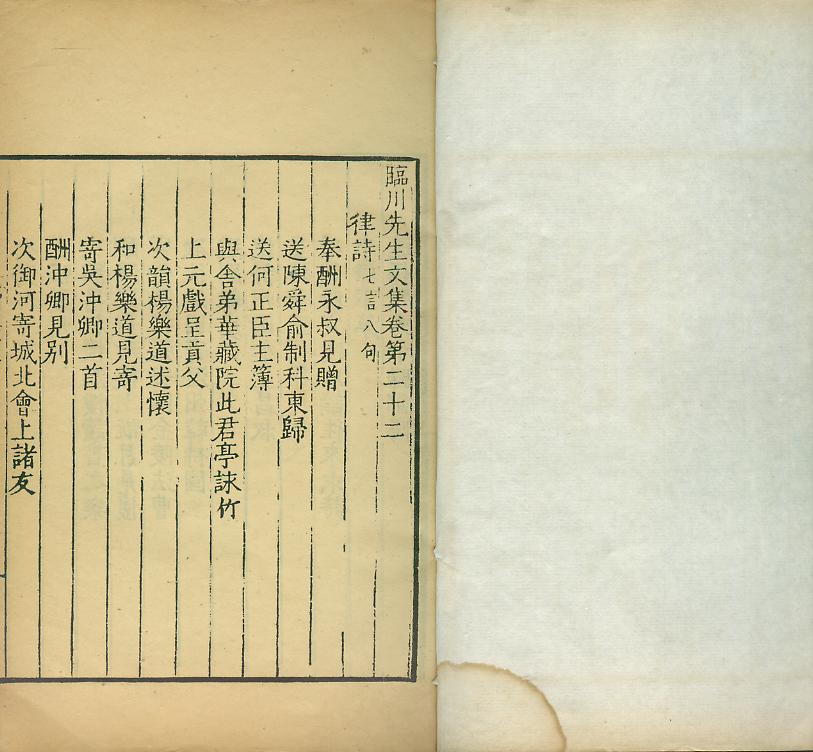 臨川先生文集卷第二十二
律詩七言八句
奉酬永叔見贈
送陳舜俞制科東歸
送何正臣主簿
與舍弟華藏院此君亭詠竹
上元戲呈貢父
次韻楊樂道述懷
和楊樂道見寄
寄吳沖卿二首
酬沖卿見别
次御河寄城北會上諸友